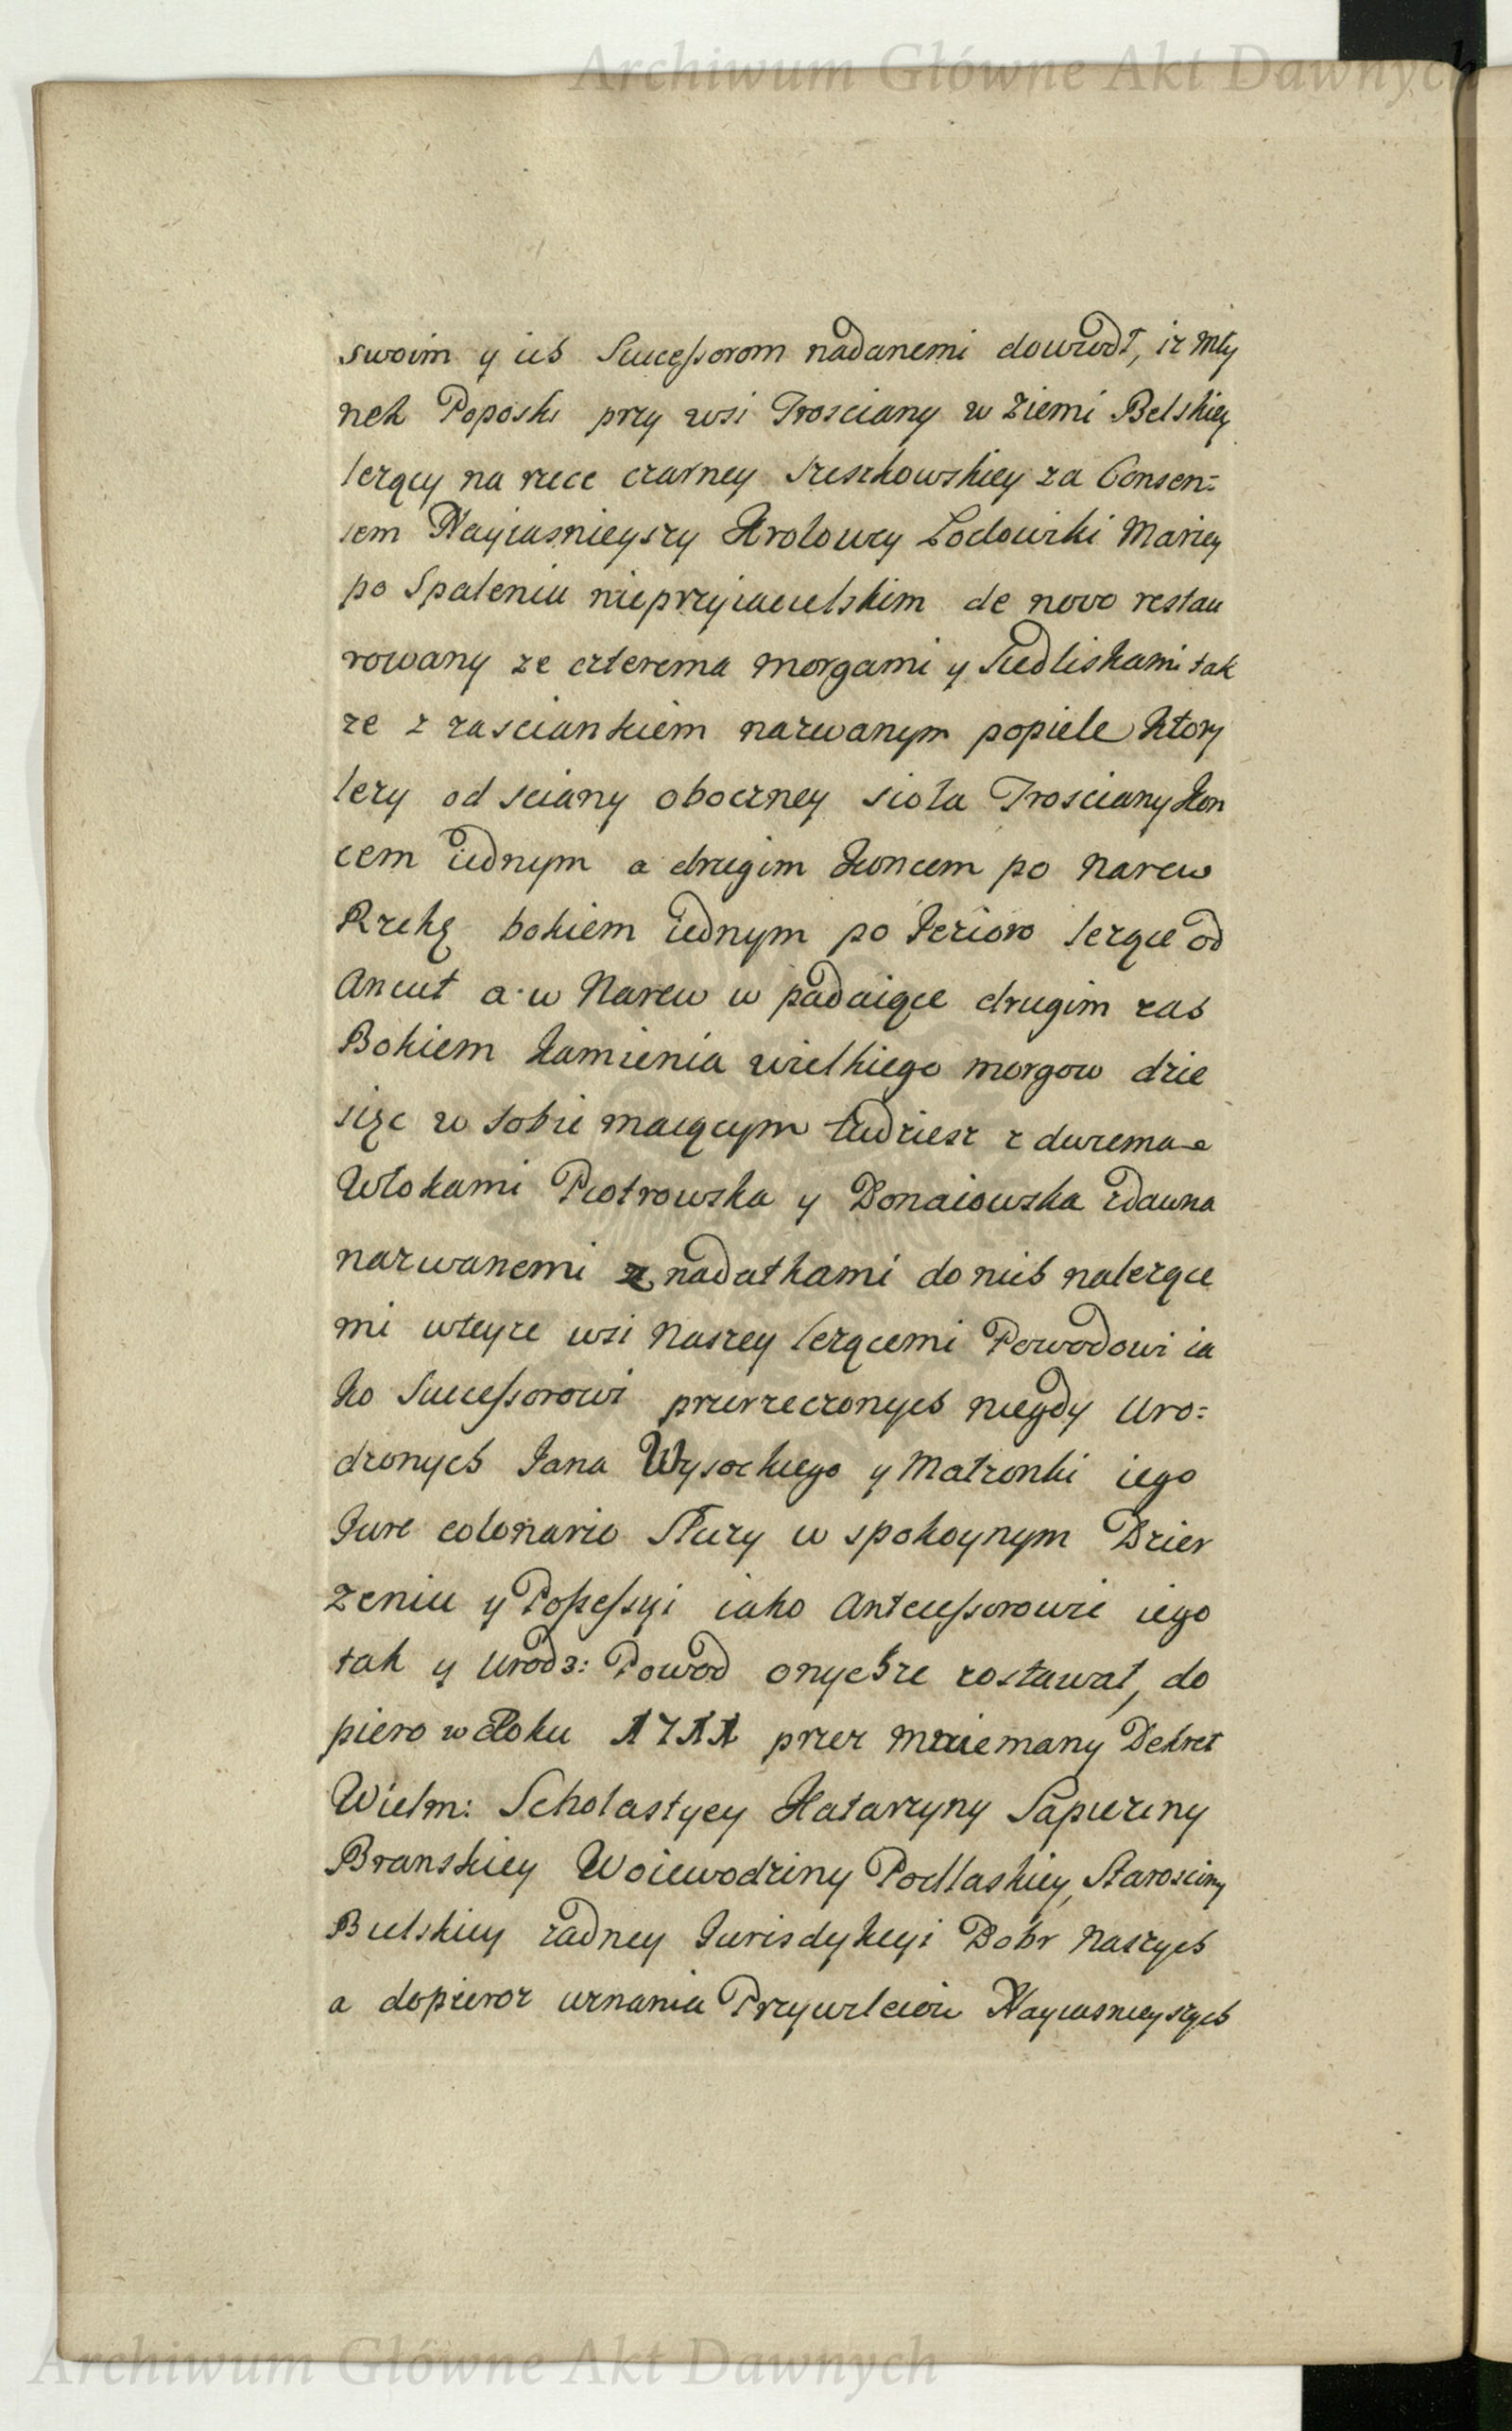 Archiwum Główne Akt Dawnych
swoim y ich Successorom nadanemi dowiodł, iz Mły
nek Poposki przy wsi Trosciany w Ziemi Belskiey
lezący na rzece czarney Freszkowskiey za Consen=
sem Nayiasnieyszy Krolowey Lodowiki Mariey
po Spaleniu nieprzyiacielskim de novo restau
rowany ze czterema morgami y Siedliskami tak
ze z zasciankiem nazwanym popiele Ktory
lezy od sciany oboczney sioła Trosciany Kon
cem iednym a drugim Koncem po Narew
Rzekę bokiem iednym po Jezioro lezące od
Ancut a w Narew w padaiące drugim zas
Bokiem Kamienia wielkiego morgow dzie
sięc w sobie maiącym tudziesz z dwiema
Włokami Piotrowska y Bonaiowska zdawna
nazwanemi z nadatkami do nich nalezące
mi wteyze wsi Naszey lezącemi Powodowi ia
ko Successorowi przerzeczonych niegdy Uro=
dzonych Jana Wysockiego y Matzonki iego
Jure colonario Słuzy w spokoynym Dzier
zeniu y Possessyi iako Antecessorowie iego
tak y Urodz: Powod onychze zostawał, do
piero w Roku 1711 przez mniemany Dekret
Wielm: Scholastycy Katarzyny Sapiezyny
Branskiey Woiewodziny Podlaskiey, Starosciny
Bielskiey zadney Jurisdykcyi Dobr Naszych
a dopieroz uznania Przywileiow Nayiasnieyszych
Archiwum Główne Akt Dawnych